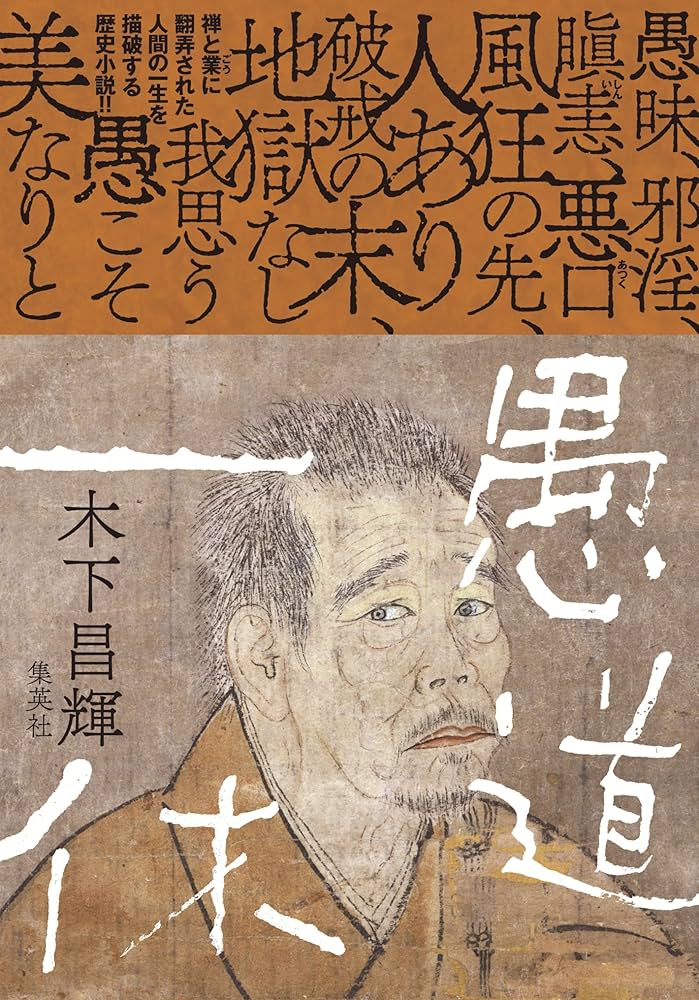 愚昧、邪淫、
瞋恚、悪口
風狂の先、
人あり
破戒の末、
地獄なし
我思う
愚こそ
美なりと
禅と業に
翻弄された
人間の一生を
描破する
歴史小説!!
しん
い
あっく
ごう
愚道
一休
木下昌輝
集英社